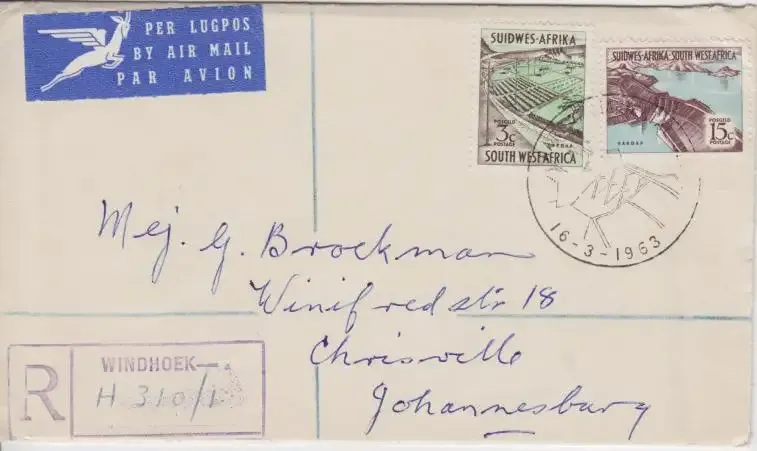 PER LUGPOS
BY AIR MAIL
PAR AVION
SUIDWES-AFRIKA
POSGELD
3c
POSTAGE
HARDAP
SOUTH WEST AFRICA
SUIDWES-AFRIKA·SOUTH WEST AFRICA
POSGELD
15c
POSTAGE
HARDAP
16-3-1963
Mej. G. Brockman
Winifredstr 18
Chrisville
Johannesburg
R
WINDHOEK
H 310/1